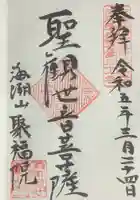 奉拝 令和五年三月二十四日
聖観世音菩薩
海潮山 聚福院